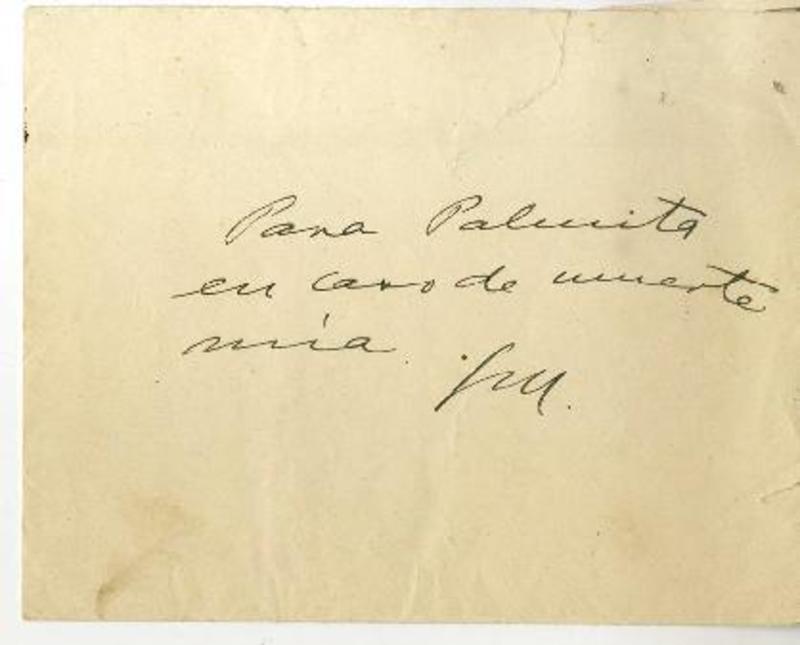 Para Palmita
en caso de muerte
mía.
GM.